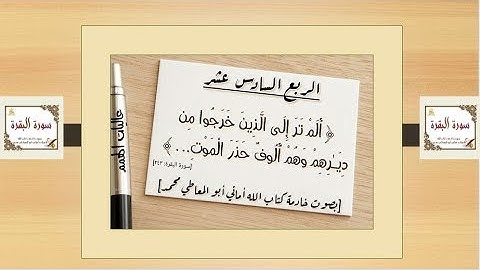 الربع السادس عشر
﴿ أَلَمْ تَرَ إِلَى الَّذِينَ خَرَجُوا مِن
دِيَـٰرِهِمْ وَهُمْ أُلُوفٌ حَذَرَ الْمَوْتِ... ﴾
[سورة البقرة: ٢٤٣]
[بصوت خادمة كتاب الله أماني أبو المعاطي محمد]
عاليات الهمم
سورة البقرة
سورة البقرة